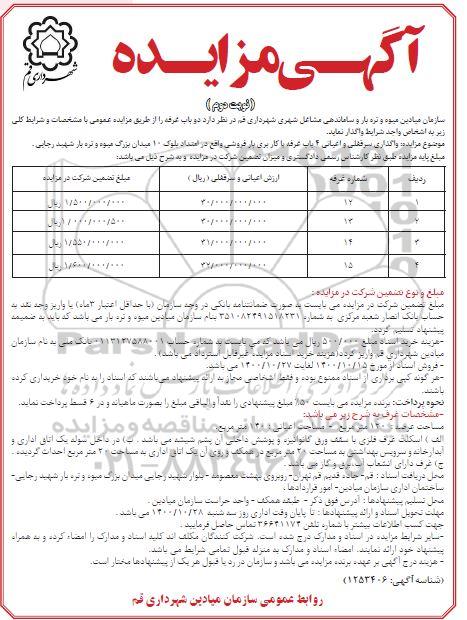 شهرداری قم
آگهی مزایده
(نوبت دوم)
سازمان میادین میوه و تره بار و ساماندهی مشاغل شهری شهرداری قم در نظر دارد دو باب غرفه را از طریق مزایده عمومی با مشخصات و شرایط کلی
زیر به اشخاص واجد شرایط واگذار نماید.
موضوع مزایده: واگذاری سرقفلی و اعیانی ۴ باب غرفه با کاربری بار فروشی واقع در امتداد بلوک ۱۰ میدان بزرگ میوه و تره بار شهید رجایی.
مبلغ پایه مزایده طبق نظر کارشناس رسمی دادگستری و میزان تضمین شرکت در مزایده و به شرح ذیل می باشد:
ردیف شماره غرفه ارزش اعیانی و سرقفلی (ریال) مبلغ تضمین شرکت در مزایده
۱ ۱۲ ۳۰/۰۰۰/۰۰۰/۰۰۰ ۱/۵۰۰/۰۰۰/۰۰۰ ریال
۲ ۱۳ ۳۰/۰۰۰/۰۰۰/۰۰۰ ۱/۰۰۰/۰۰۰/۵۰۰ ریال
۳ ۱۴ ۳۱/۰۰۰/۰۰۰/۰۰۰ ۱/۵۵۰/۰۰۰/۰۰۰ ریال
۴ ۱۵ ۳۲/۰۰۰/۰۰۰/۰۰۰ ۱/۶۰۰/۰۰۰/۰۰۰ ریال
مبلغ و نوع تضمین شرکت در مزایده:
مبلغ تضمین شرکت در مزایده می بایست به صورت ضمانتنامه بانکی در وجه سازمان (با حداقل اعتبار ۳ماه) یا واریز وجه نقد به
حساب بانک انصار شعبه مرکزی به شماره ۳۵۱۰۸۲۴۹۱۵۱۸۲۳۱ بنام سازمان میادین میوه و تره بار می باشد که باید به ضمیمه
پیشنهاد تسلیم گردد.
-هزینه خرید اسناد مبلغ ۵۰۰/۰۰۰ ریال می باشد که می بایست به شماره حساب ۰۱۱۳۱۲۷۵۸۸۰۰۱ بانک ملی به نام سازمان
میادین شهرداری قم واریز گردد(هزینه خرید اسناد مزایده غیرقابل استرداد می باشد).
- فروش اسناد از مورخ ۱۴۰۰/۱۰/۱۵ لغایت ۱۴۰۰/۱۰/۲۷ می باشد.
-هر گونه کپی برداری از اسناد ممنوع بوده و فقط اشخاصی مجاز به ارائه پیشنهاد می‌باشند که اسناد را به نام خود خریداری کرده
باشند.
نحوه پرداخت: برنده مزایده می بایست ۵۰٪ مبلغ پیشنهادی را نقدا و الباقی مبلغ را بصورت ماهیانه و در ۶ قسط پرداخت نماید.
-مشخصات غرفه به شرح زیر می باشد:
مساحت عرصه: ۱۴۰ متر مربع - مساحت اعیانی: ۱۴۰ متر مربع
الف) اسکلت غرف فلزی با سقف ورق گالوانیزه و پوشش داخلی آن پشم شیشه می باشد. ب) در داخل سوله یک اتاق اداری و
آبدارخانه و سرویس بهداشتی به مساحت ۲۰ متر مربع در همکف و روی آن یک اتاق اداری به مساحت ۲۰ متر مربع احداث گردیده.
ج) غرف دارای انشعاب آب، برق و گاز می باشد.
محل دریافت اسناد: قم- جاده قدیم قم تهران- روبروی بهشت معصومه - بلوار شهید رجایی میدان بزرگ میوه و تره بار شهید رجایی-
ساختمان اداری سازمان میادین- امور قراردادها.
محل تسلیم پیشنهادها: آدرس فوق ذکر - طبقه همکف - واحد حراست سازمان میادین.
مهلت تحویل اسناد و ارائه پیشنهادها: تا پایان وقت اداری روز سه شنبه ۱۴۰۰/۱۰/۲۸ می باشد.
جهت کسب اطلاعات بیشتر با شماره تلفن ۳۶۶۴۱۱۷۴ تماس حاصل فرمایید.
-سایر شرایط مزایده در اسناد و مدارک درج شده است. شرکت کنندگان مکلف اند کلیه اسناد و مدارک را امضاء کرده و به همراه
پیشنهاد خود ارائه نمایند. امضاء اسناد و مدارک به منزله قبول تمامی شرایط می باشد.
- هزینه درج آگهی بر عهده برنده مزایده می باشد و سازمان در رد یا قبول هر یک از پیشنهادها مختار است.
(شناسه آگهی: ۱۲۵۳۴۰۶)
روابط عمومی سازمان میادین شهرداری قم